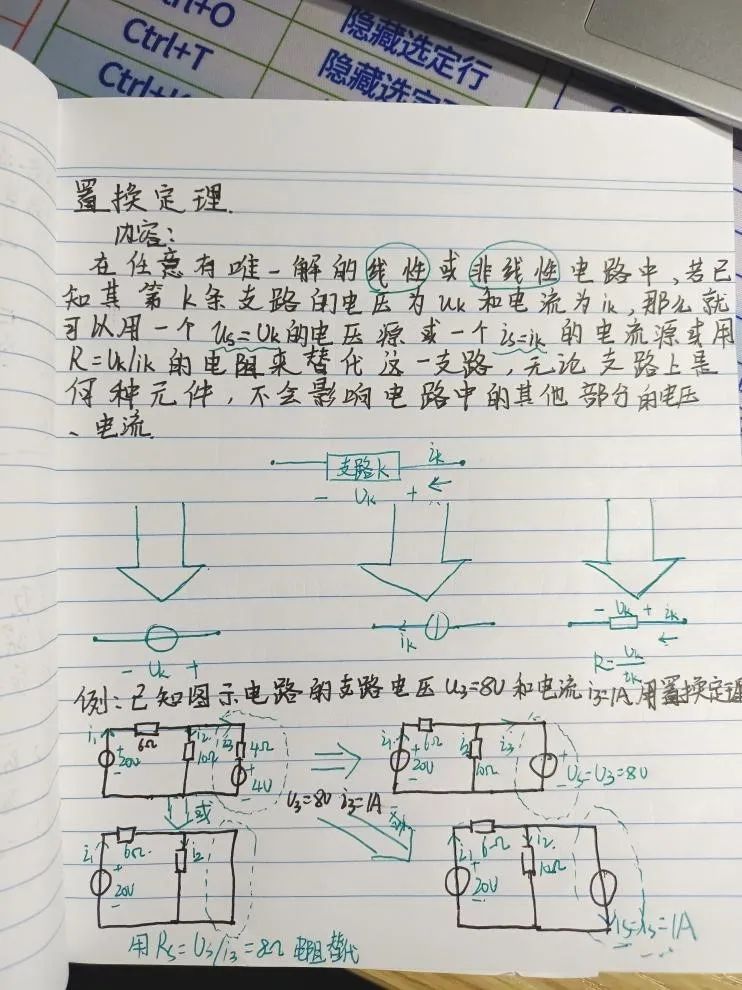 Ctrl+O
隐藏选定行
Ctrl+T
隐藏选定
置换定理.
内容:
在任意有唯一解的线性或非线性电路中,若已
知其第k条支路的电压为uk和电流为ik,那么就
可以用一个Us=Uk的电压源或一个is=ik的电流源或用
R=Uk/ik的电阻来替代这一支路,无论支路上是
何种元件,不会影响电路中的其他部分的电压
、电流.
支路k ik
- Uk +
- Uk +
ik
- Uk + ik
R=Uk/ik
例:已知图示电路的支路电压U3=8V和电流i3=1A用置换定理
i1 6Ω i2 i3 4Ω
+ 20V - 10Ω + 4V -
i1 6Ω i2 i3
+ 20V - 10Ω + Us=U3=8V -
或
U3=8V i3=1A
i1 6Ω i2
+ 20V -
i1 6Ω i2
+ 20V - 10Ω
is=i3=1A
用Rs=U3/i3=8Ω电阻替代